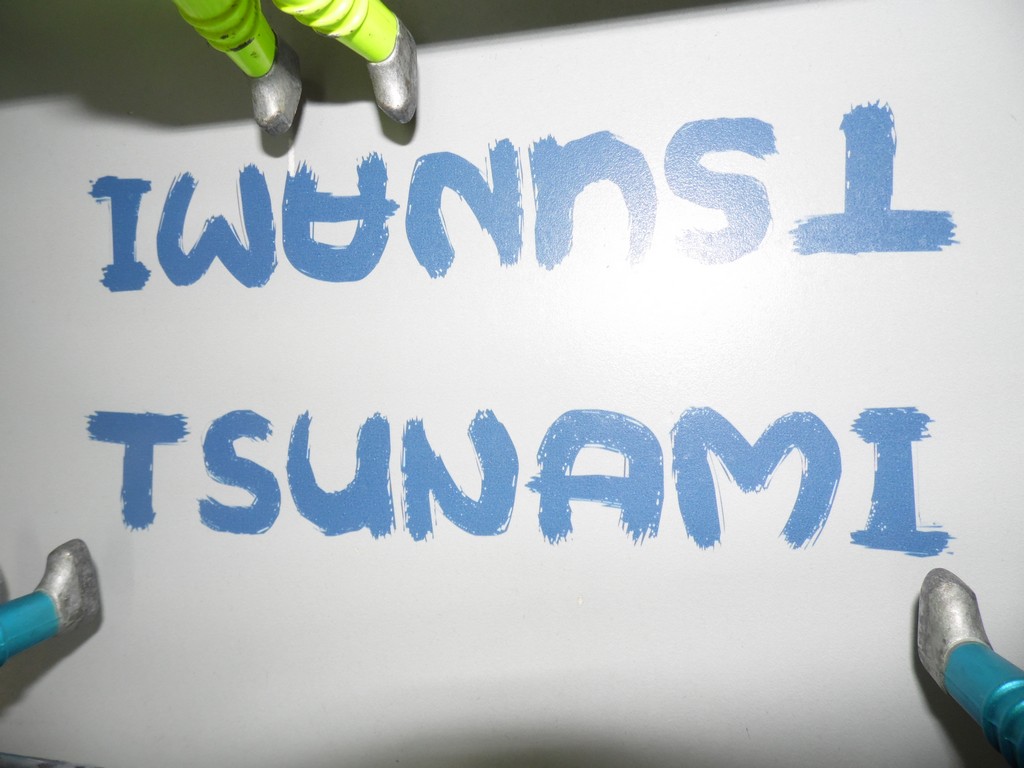 TSUNAMI
TSUNAMI